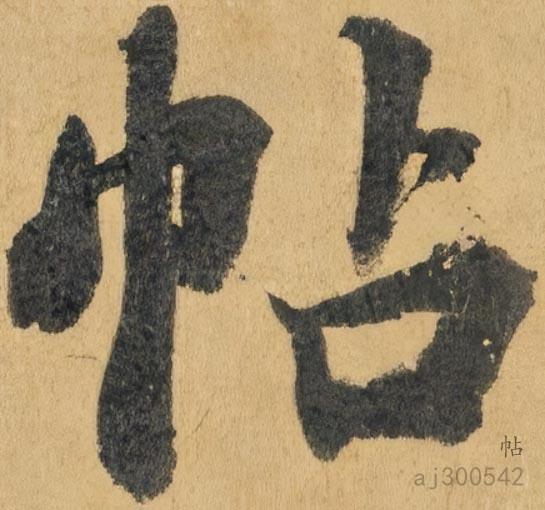 帖
帖
aj300542